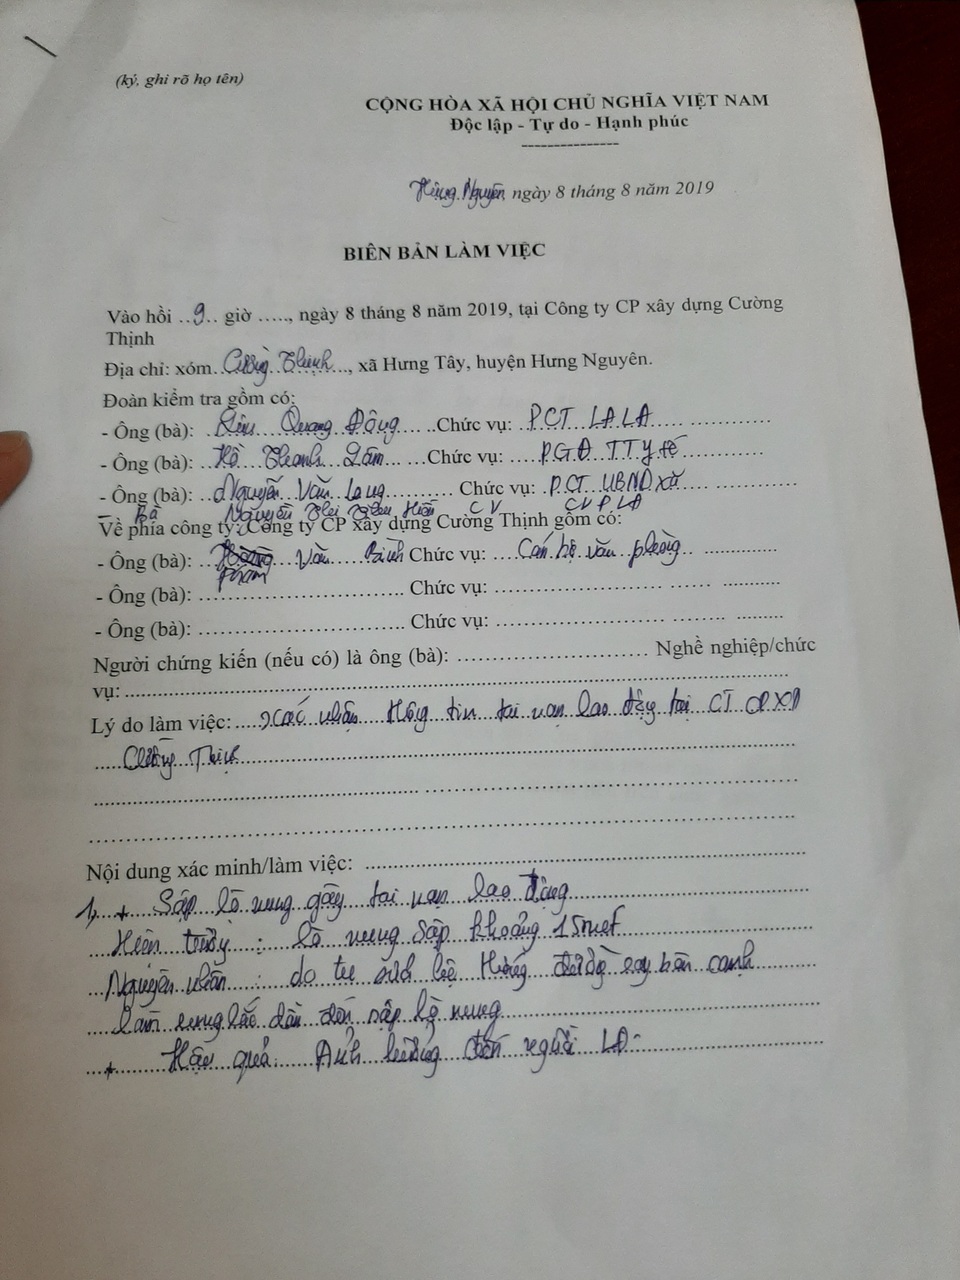 (ký, ghi rõ họ tên)
CỘNG HÒA XÃ HỘI CHỦ NGHĨA VIỆT NAM
Độc lập - Tự do - Hạnh phúc
---------------
Hưng Nguyên, ngày 8 tháng 8 năm 2019
BIÊN BẢN LÀM VIỆC
Vào hồi ..9.. giờ ....., ngày 8 tháng 8 năm 2019, tại Công ty CP xây dựng Cường
Thịnh
Địa chỉ: xóm Cường Thịnh, xã Hưng Tây, huyện Hưng Nguyên.
Đoàn kiểm tra gồm có:
- Ông (bà): Quang Đông Chức vụ: P.CT LA LA
- Ông (bà): Hồ Thanh Lâm Chức vụ: P.GĐ TTY tế
- Ông (bà): Nguyễn Văn Long Chức vụ: P.CT UBND xã
Bà Nguyễn Thị Hiền CV
Về phía công ty: Công ty CP xây dựng Cường Thịnh gồm có:
- Ông (bà): Phạm Văn Bình Chức vụ: Cán bộ văn phòng
- Ông (bà): ........ Chức vụ: ........
- Ông (bà): ........ Chức vụ: ........
Người chứng kiến (nếu có) là ông (bà): ........ Nghề nghiệp/chức
vụ: ........
Lý do làm việc: xác nhận thông tin tai nạn lao động tại CT CPXD
Cường Thịnh
Nội dung xác minh/làm việc: ........
1, + Sập lò nung gây tai nạn lao động
Hiện trường: lò nung sập khoảng 15 mét
Nguyên nhân: do hệ thống bên cạnh
làm rung lắc dẫn đến sập lò nung
+ Hậu quả: Ảnh hưởng đến người LĐ.